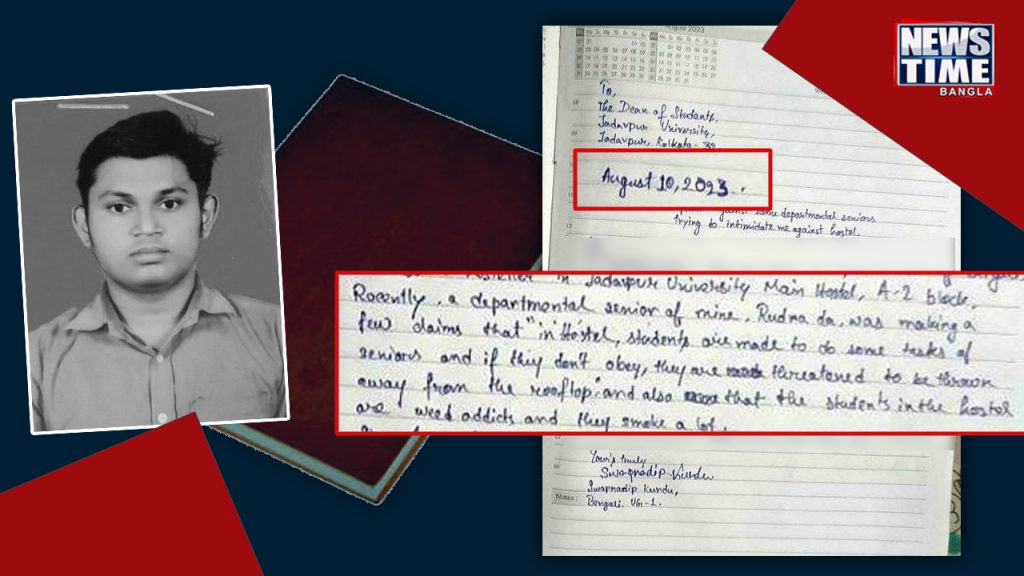 NEWS
TIME
BANGLA
August 2023
To,
The Dean of Students,
Jadavpur University,
Jadavpur, Kolkata - 32
August 10, 2023.
against some departmental seniors
trying to intimidate me against hostel.
in Jadavpur University Main Hostel, A-2 block.
Recently, a departmental senior of mine, Rudra da, was making a
few claims that "in Hostel, students are made to do some tasks of
seniors and if they don't obey, they are threatened to be thrown
away from the rooftop" and also that the students in the hostel
are weed addicts and they smoke a lot.
Yours truly
Swapnadip Kundu
Swapnadip Kundu,
Notes: Bengali. UG-1.